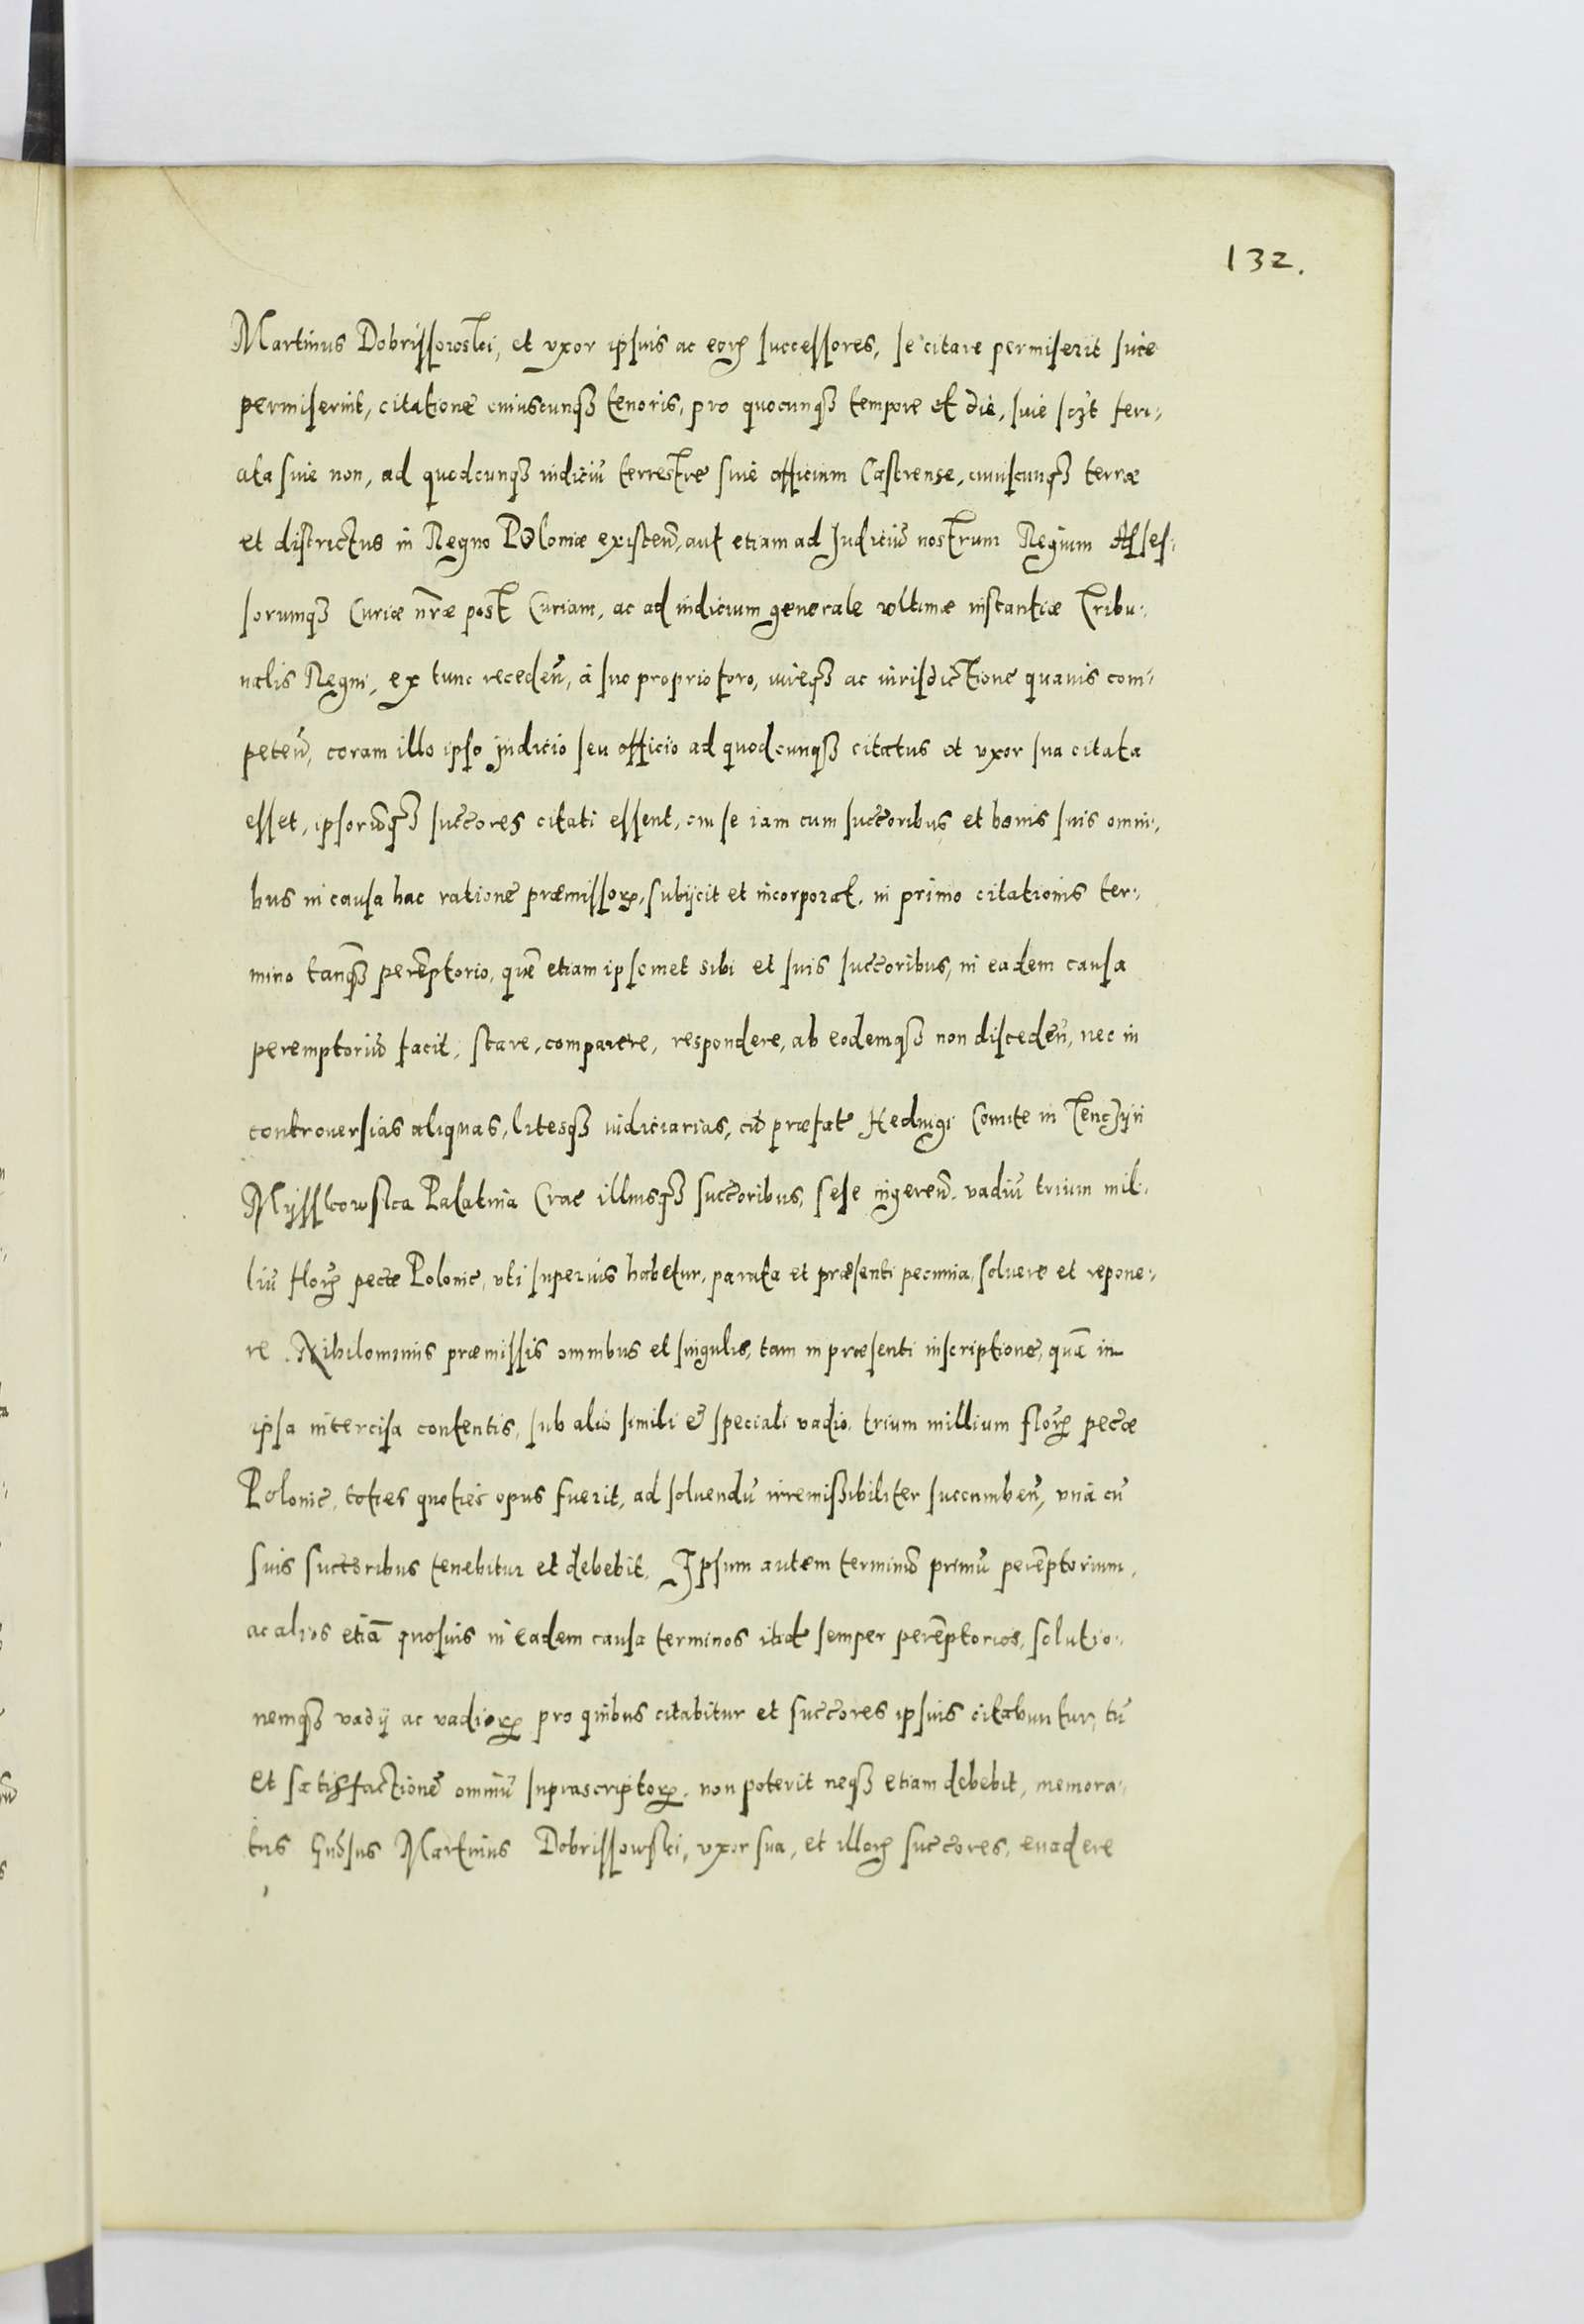 132.
Martinus Dobrissowski, et uxor ipsius ac eorꝫ successores, se citare permiserit siue
permiserint, citatione cuiuscunqꝫ tenoris, pro quocunqꝫ tempore et die, siue feri-
ata siue non, ad quodcunqꝫ iudiciū terrestre siue officium Castrense, cuiuscunqꝫ terræ
et districtus in Regno Poloniæ existeñ, aut etiam ad Iudiciū nostrum Regium Asses-
sorumqꝫ Curiæ nr̄æ post Curiam, ac ad iudicium generale vltimæ instantiæ Tribu-
nalis Regni, ex tunc recedeñ, à suo proprio foro, iureqꝫ ac iurisdictione quauis com-
peteñ, coram illo ipso Iudicio seu officio ad quodcunqꝫ citatus et vxor sua citata
esset, ipsorūqꝫ succ̄ores citati essent, cui se iam cum succ̄oribus et bonis suis omni-
bus in causa hac ratione præmissorꝫ, subijcit et incorporat, in primo citationis ter-
mino tanqꝫ perēptorio, quē etiam ipsemet sibi et suis succ̄oribus, in eadem causa
peremptoriū facit, stare, comparere, respondere, ab eodemqꝫ non discedeñ, nec in
controuersias aliquas, litesqꝫ iudiciarias, cū præfat Heduigi Comite in Tenczyn
Mijsskowska Palatina Crac illiusqꝫ succ̄oribus, sese ingereñ, vadiū trium mil-
liū florꝫ pec̄æ Polonic, vti superius habetur, parata et præsenti pecunia, soluere et repone-
re. Nihilominus præmissis omnibus et singulis, tam in præsenti inscriptione, quā in
ipsa intercisa contentis, sub alio simili & speciali vadio, trium millium florꝫ pec̄æ
Polonic, toties quoties opus fuerit, ad soluendū irremissibiliter succumbeñ, vnà cū
suis succ̄oribus tenebitur et debebit. Ipsum autem terminū primū perēptorium,
ac alios etiā quosuis in eadem causa terminos itid semper perēptorios, solutio-
nemqꝫ vadij ac vadiorꝫ pro quibus citabitur et succ̄ores ipsius citabuntur, tū
et satisfactionē omniū suprascriptorꝫ, non poterit neqꝫ etiam debebit, memora-
tus Gn̄sus Martinus Dobrissowski, vxor sua, et illorꝫ succ̄ores, euadere